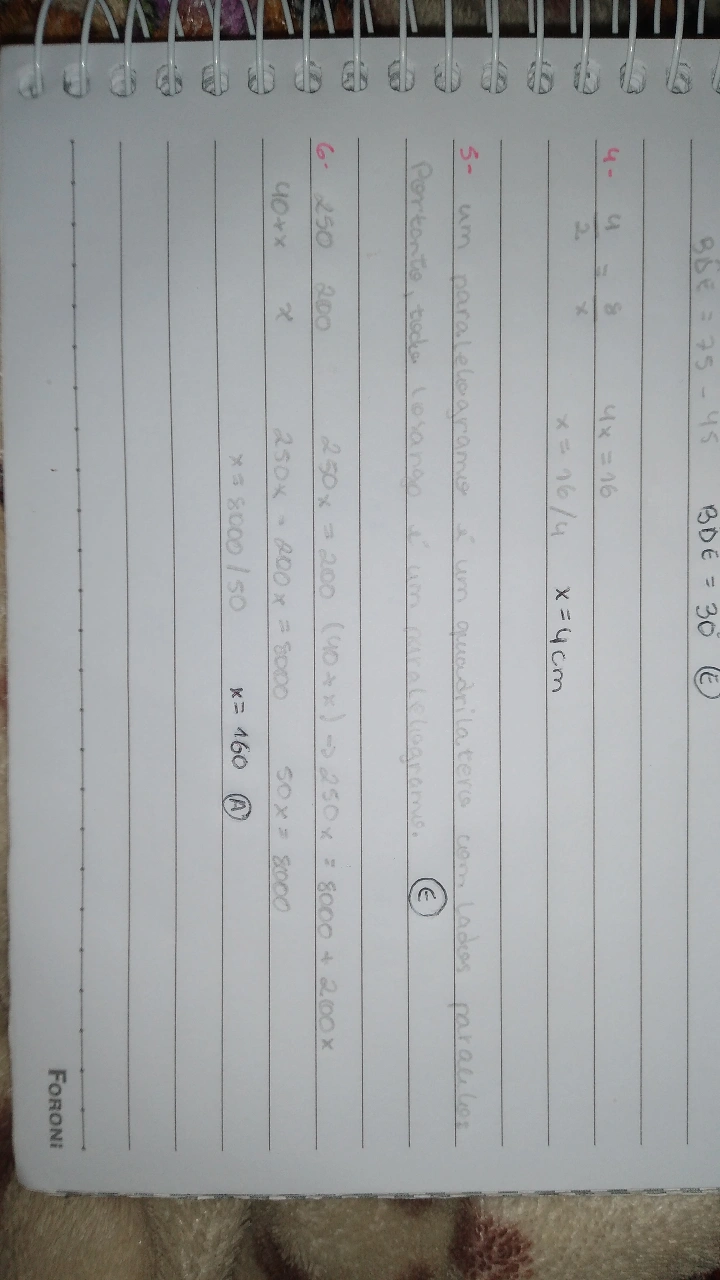 BDE = 75 - 45 BDE = 30° (E)
4- 4/2 = 8/x 4x = 16
x = 16/4 x = 4cm
5- um paralelogramo é um quadrilatero com lados paralelos
Portanto, todo losango é um paralelogramo. (E)
6- 250 200 250x = 200 (40+x) → 250x = 8000 + 200x
40+x x 250x - 200x = 8000 50x = 8000
x = 8000/50 x = 160 (A)
FORONI